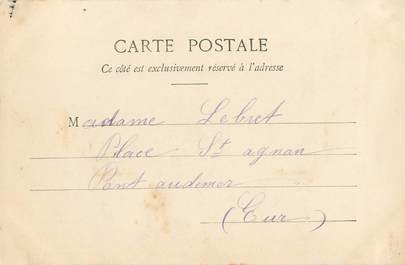 CARTE POSTALE
Ce côté est exclusivement réservé à l'adresse
Madame Lebret
Place St agnan
Pont audemer
(Eur)